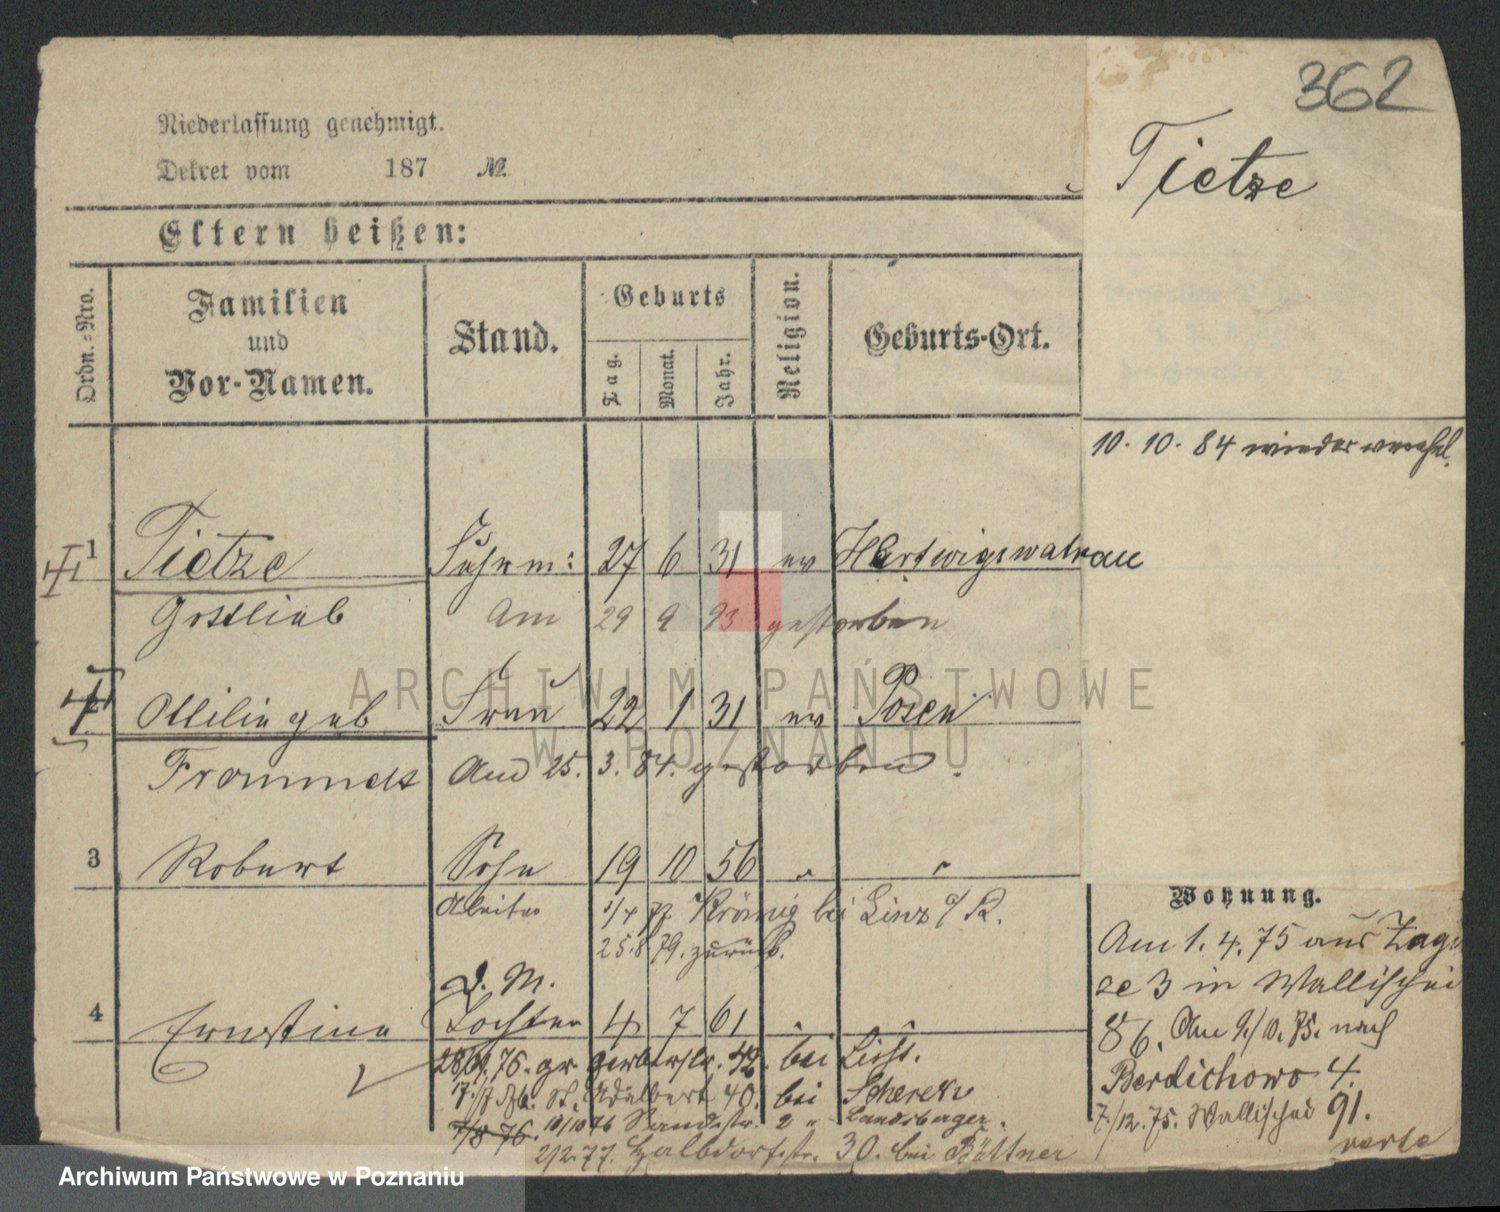 362
Niederlassung genehmigt.
Dekret vom 187 №.
Tietze
Eltern heißen:
Ordn.-Nro.
Familien und Vor-Namen.
Stand.
Geburts
Tag.
Monat.
Jahr.
Religion.
Geburts-Ort.
10. 10. 84 wieder
1 Tietze Fuhrm: 27 6 31 ev Hertwigswalrau
Gottlieb Am 29 9 93 gestorben
Ottilie geb Frau 22 1 31 ev Posen
Frommelt Am 25. 3. 84. gestorben.
3 Robert Sohn 19 10 56 " "
Arbeiter 1/4 77 Krönig bei Linz a/R.
25.8 79. zurück.
D. M.
4 Ernestine Tochter 4 7 61 " "
28/9. 76. gr Gerberstr. 42. bei Licht.
17/7 St. Adalbert 40. bei Scherek
1/8 76. 10/10 76 Sandstr. 2 " Landsberger.
2/2. 77. Halbdorfstr. 30. bei Büttner
Wohnung.
Am 1. 4. 75 aus Zagorze 3 in Wallischei
86. Am 9/10. 75. nach
Berdichowo 4.
7/12. 75. Wallischei 91.
verte
ARCHIWUM PAŃSTWOWE
W POZNANIU
Archiwum Państwowe w Poznaniu